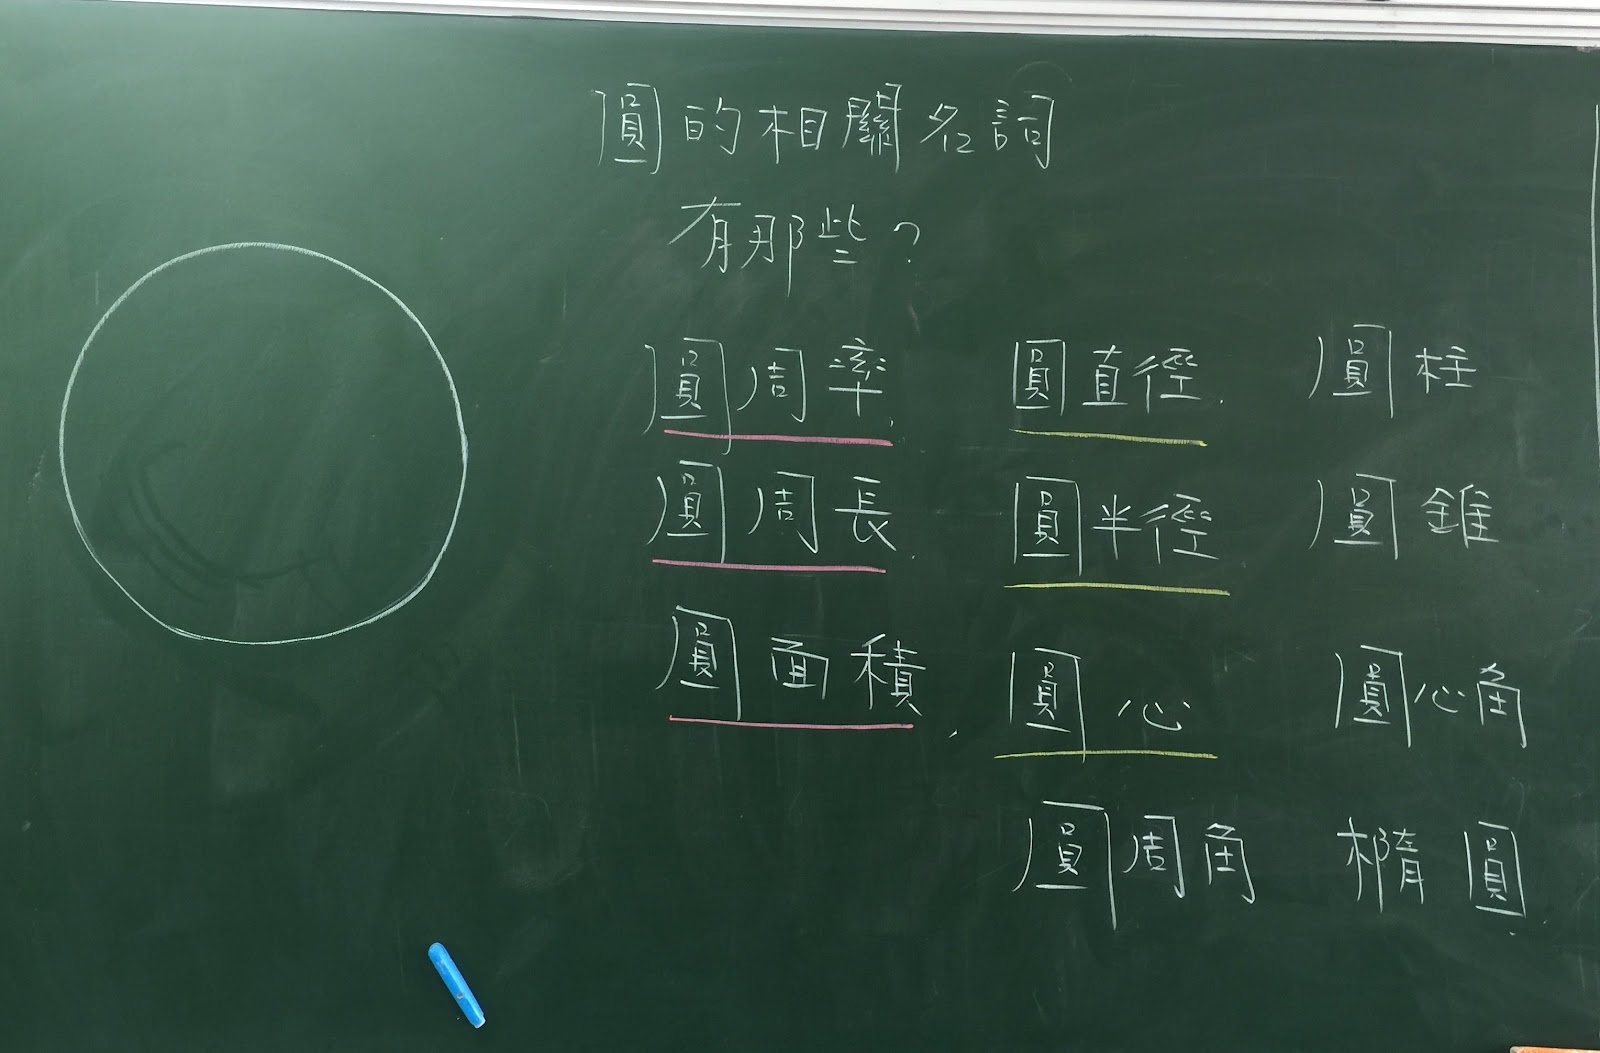 圓的相關名詞
有那些?
圓周率 圓直徑 圓柱
圓周長 圓半徑 圓錐
圓面積 圓心 圓心角
圓周角 橢圓